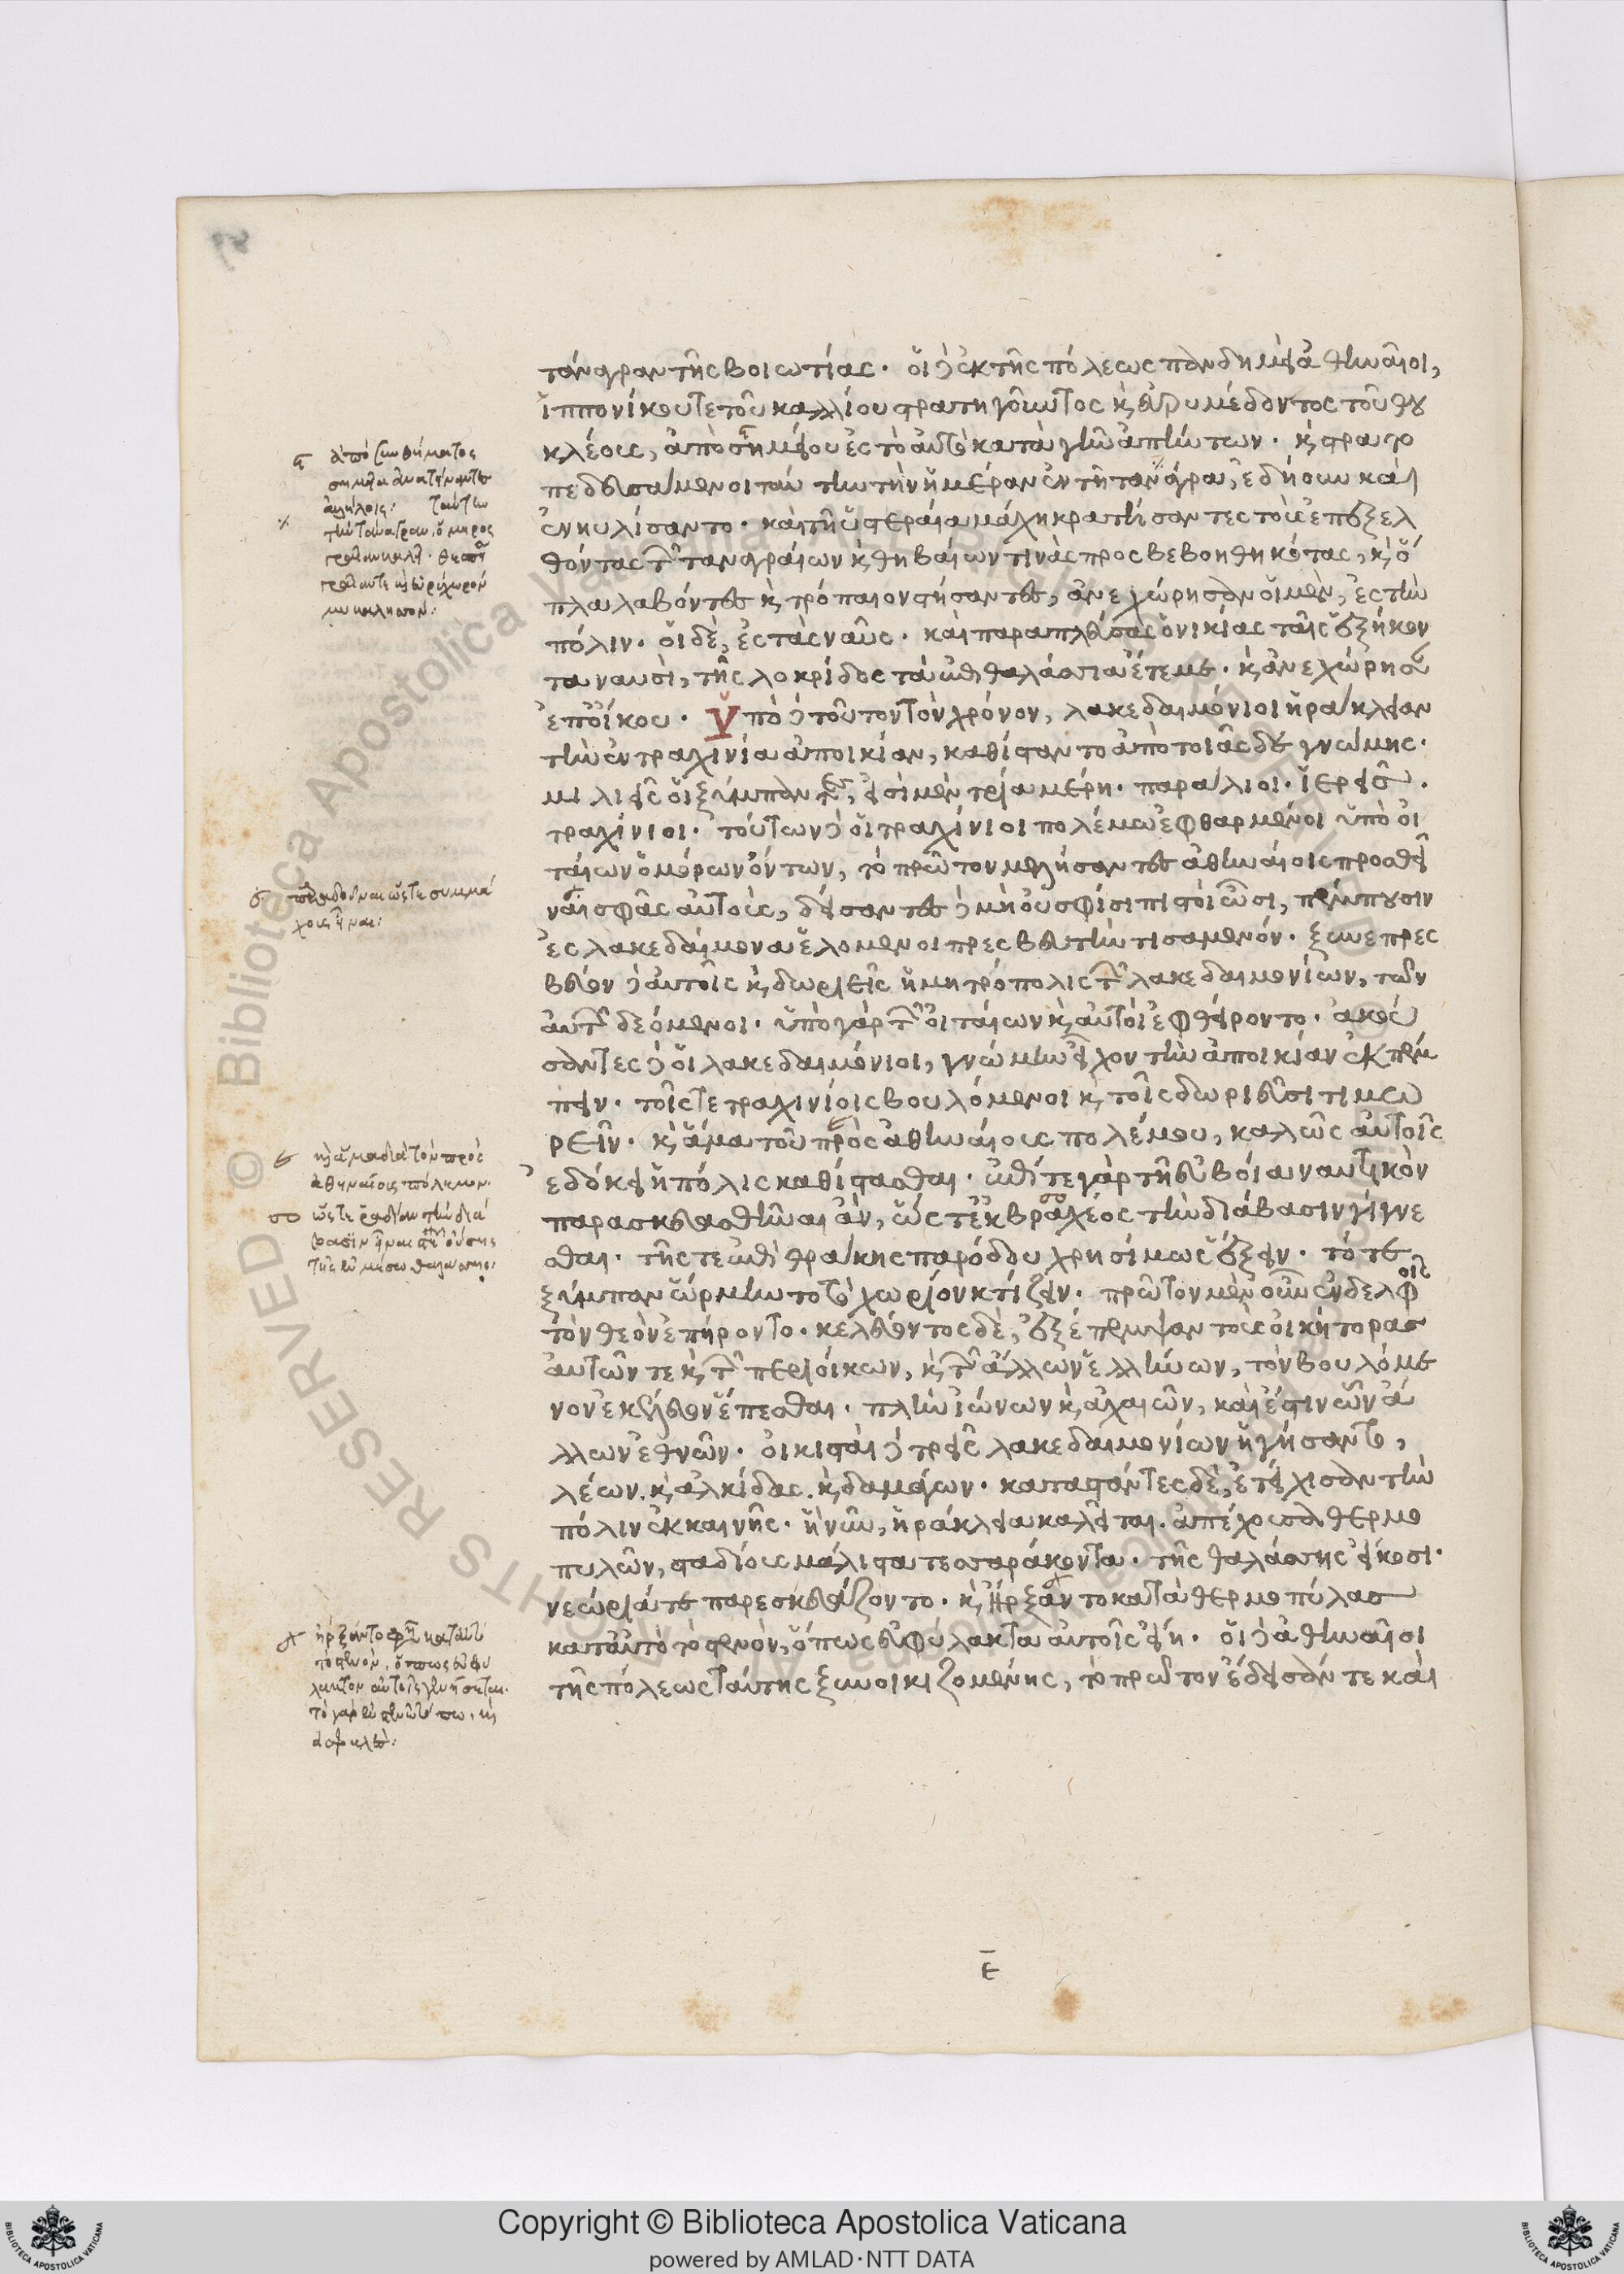 τάναγραν τῆς βοιωτίας. οἱ δ' ἐκ τῆς πόλεως πανδημεὶ ἀθηναῖοι,
ἱππονίκου τε τοῦ καλλίου στρατηγοῦντος κ εὐρυμέδοντος τοῦ θου
κλέους, ἀπὸ σημείου ἐς τὸ αὐτὸ κατὰ γῆν ἀπήντων. κ στρατο
πεδευσάμενοι ταύτην τὴν ἡμέραν ἐν τῇ τανάγρα, ἐδήουν καὶ
ἐνηυλίσαντο. καὶ τῇ ὑστεραία μάχη κρατήσαντες τοὺς ἐπεξελ
θόντας τῶν ταναγραίων κ θηβαίων τινὰς προσβεβοηθηκότας, κ ὅ
πλα λαβόντες κ τρόπαιον στήσαντες, ἀνεχώρησαν οἱ μὲν, ἐς τὴν
πόλιν. οἱ δὲ, ἐς τὰς ναῦς. καὶ παραπλεύσας ὁ νικίας ταῖς ἑξήκον
τα ναυσὶ, τῆς λοκρίδος τὰ ἐπιθαλάσσια ἔτεμε. κ ἀνεχώρησεν
ἐπ' οἴκου. Ὑπὸ δὲ τοῦτον τὸν χρόνον, λακεδαιμόνιοι ἡράκλειαν
τὴν ἐν τραχινία ἀποικίαν, καθίσταντο ἀπὸ τοιᾶσδε γνώμης.
μιλιεῖς οἱ ξύμπαντες, εἰσὶ μὲν τρία μέρη. παράλιοι. ἱερεῖς.
τραχίνιοι. τούτων δὲ οἱ τραχίνιοι πολέμω ἐφθαρμένοι ὑπὸ οἰ
ταίων ὁμόρων ὄντων, τὸ πρῶτον μελήσαντες ἀθηναίοις προσθεῖ
ναι σφᾶς αὐτοὺς, δείσαντες δὲ μὴ οὐ σφίσι πιστοὶ ὦσι, πέμπουσιν
ἐς λακεδαίμονα ἑλόμενοι πρεσβευτὴν τισαμενόν. ξυνεπρεσ
βεύοντο δὲ αὐτοῖς κ δωριεῖς ἡ μητρόπολις τῶν λακεδαιμονίων, τῶν
αὐτῶν δεόμενοι. ὑπὸ γὰρ τῶν οἰταίων κ αὐτοὶ ἐφθείροντο. ἀκού
σαντες δὲ οἱ λακεδαιμόνιοι, γνώμην εἶχον τὴν ἀποικίαν ἐκπέμ
πειν. τοῖς τε τραχινίοις βουλόμενοι κ τοῖς δωριεῦσι τιμω
ρεῖν. κ ἅμα τοῦ πρὸς ἀθηναίους πολέμου, καλῶς αὐτοῖς
ἐδόκει ἡ πόλις καθίστασθαι. ἐπί τε γὰρ τῇ εὐβοία ναυτικὸν
παρασκευασθῆναι ἂν, ὥστ' ἐκ βραχέος τὴν διάβασιν γίγνε
σθαι. τῆς τε ἐπὶ θράκης παρόδου χρησίμως ἕξειν. τό τε
ξύμπαν ὥρμηντο τὸ χωρίον κτίζειν. πρῶτον μὲν οὖν ἐν δελφοῖς
τὸν θεὸν ἐπήροντο. κελεύοντος δὲ, ἐξέπεμψαν τοὺς οἰκήτορας
αὐτῶν τε κ τῶν περιοίκων, κ τῶν ἄλλων ἑλλήνων, τὸν βουλόμε
νον ἐκέλευον ἕπεσθαι. πλὴν ἰώνων κ ἀχαιῶν, καὶ ἔστιν ὧν ἄ
λλων ἐθνῶν. οἰκισταὶ δὲ τρεῖς λακεδαιμονίων ἡγήσαντο,
λέων. κ ἀλκίδας. κ δαμάγων. καταστάντες δὲ, ἐτείχισαν τὴν
πόλιν ἐκ καινῆς. ἣ νῦν, ἡράκλεια καλεῖται. ἀπέχουσα θερμο
πυλῶν, σταδίους μάλιστα τεσσαράκοντα. τῆς θαλάσσης εἴκοσι.
νεώριά τε παρεσκευάζοντο. κ ἦρξαντο κατὰ θερμοπύλας
κατ' αὐτὸ τὸ στενὸν, ὅπως εὐφύλακτα αὐτοῖς εἴη. οἱ δὲ ἀθηναῖοι
τῆς πόλεως ταύτης ξυνοικιζομένης, τὸ πρῶτον ἔδεισάν τε καὶ
ε
ἀπὸ συνθήματος
σημεῖα ἀνατείναντες
ἀλλήλοις: ταύτην
τὴν τάναγραν, ὅμηρος
γραῖαν καλεῖ.
κ εὐρύχορον
μυκαλησσόν:
παραδοῦναι ὥστε συμμά
χους εἶναι:
κ ἅμα διὰ τὸν πρὸς
ἀθηναίους πόλεμον.
ὥστε ῥαδίαν τὴν διά
βασιν εἶναι οὔσης
τῆς ἐν μέσω θαλάσσης:
ἤρξαντο κατὰ τὸ
τὸ στενὸν, ὅπως εὐφύ
λακτον αὐτοῖς γενήσεται.
τὸ γὰρ ἐν στενῶ τόπω, κ
ἀσφαλὲς:
Copyright © Biblioteca Apostolica Vaticana
powered by AMLAD·NTT DATA